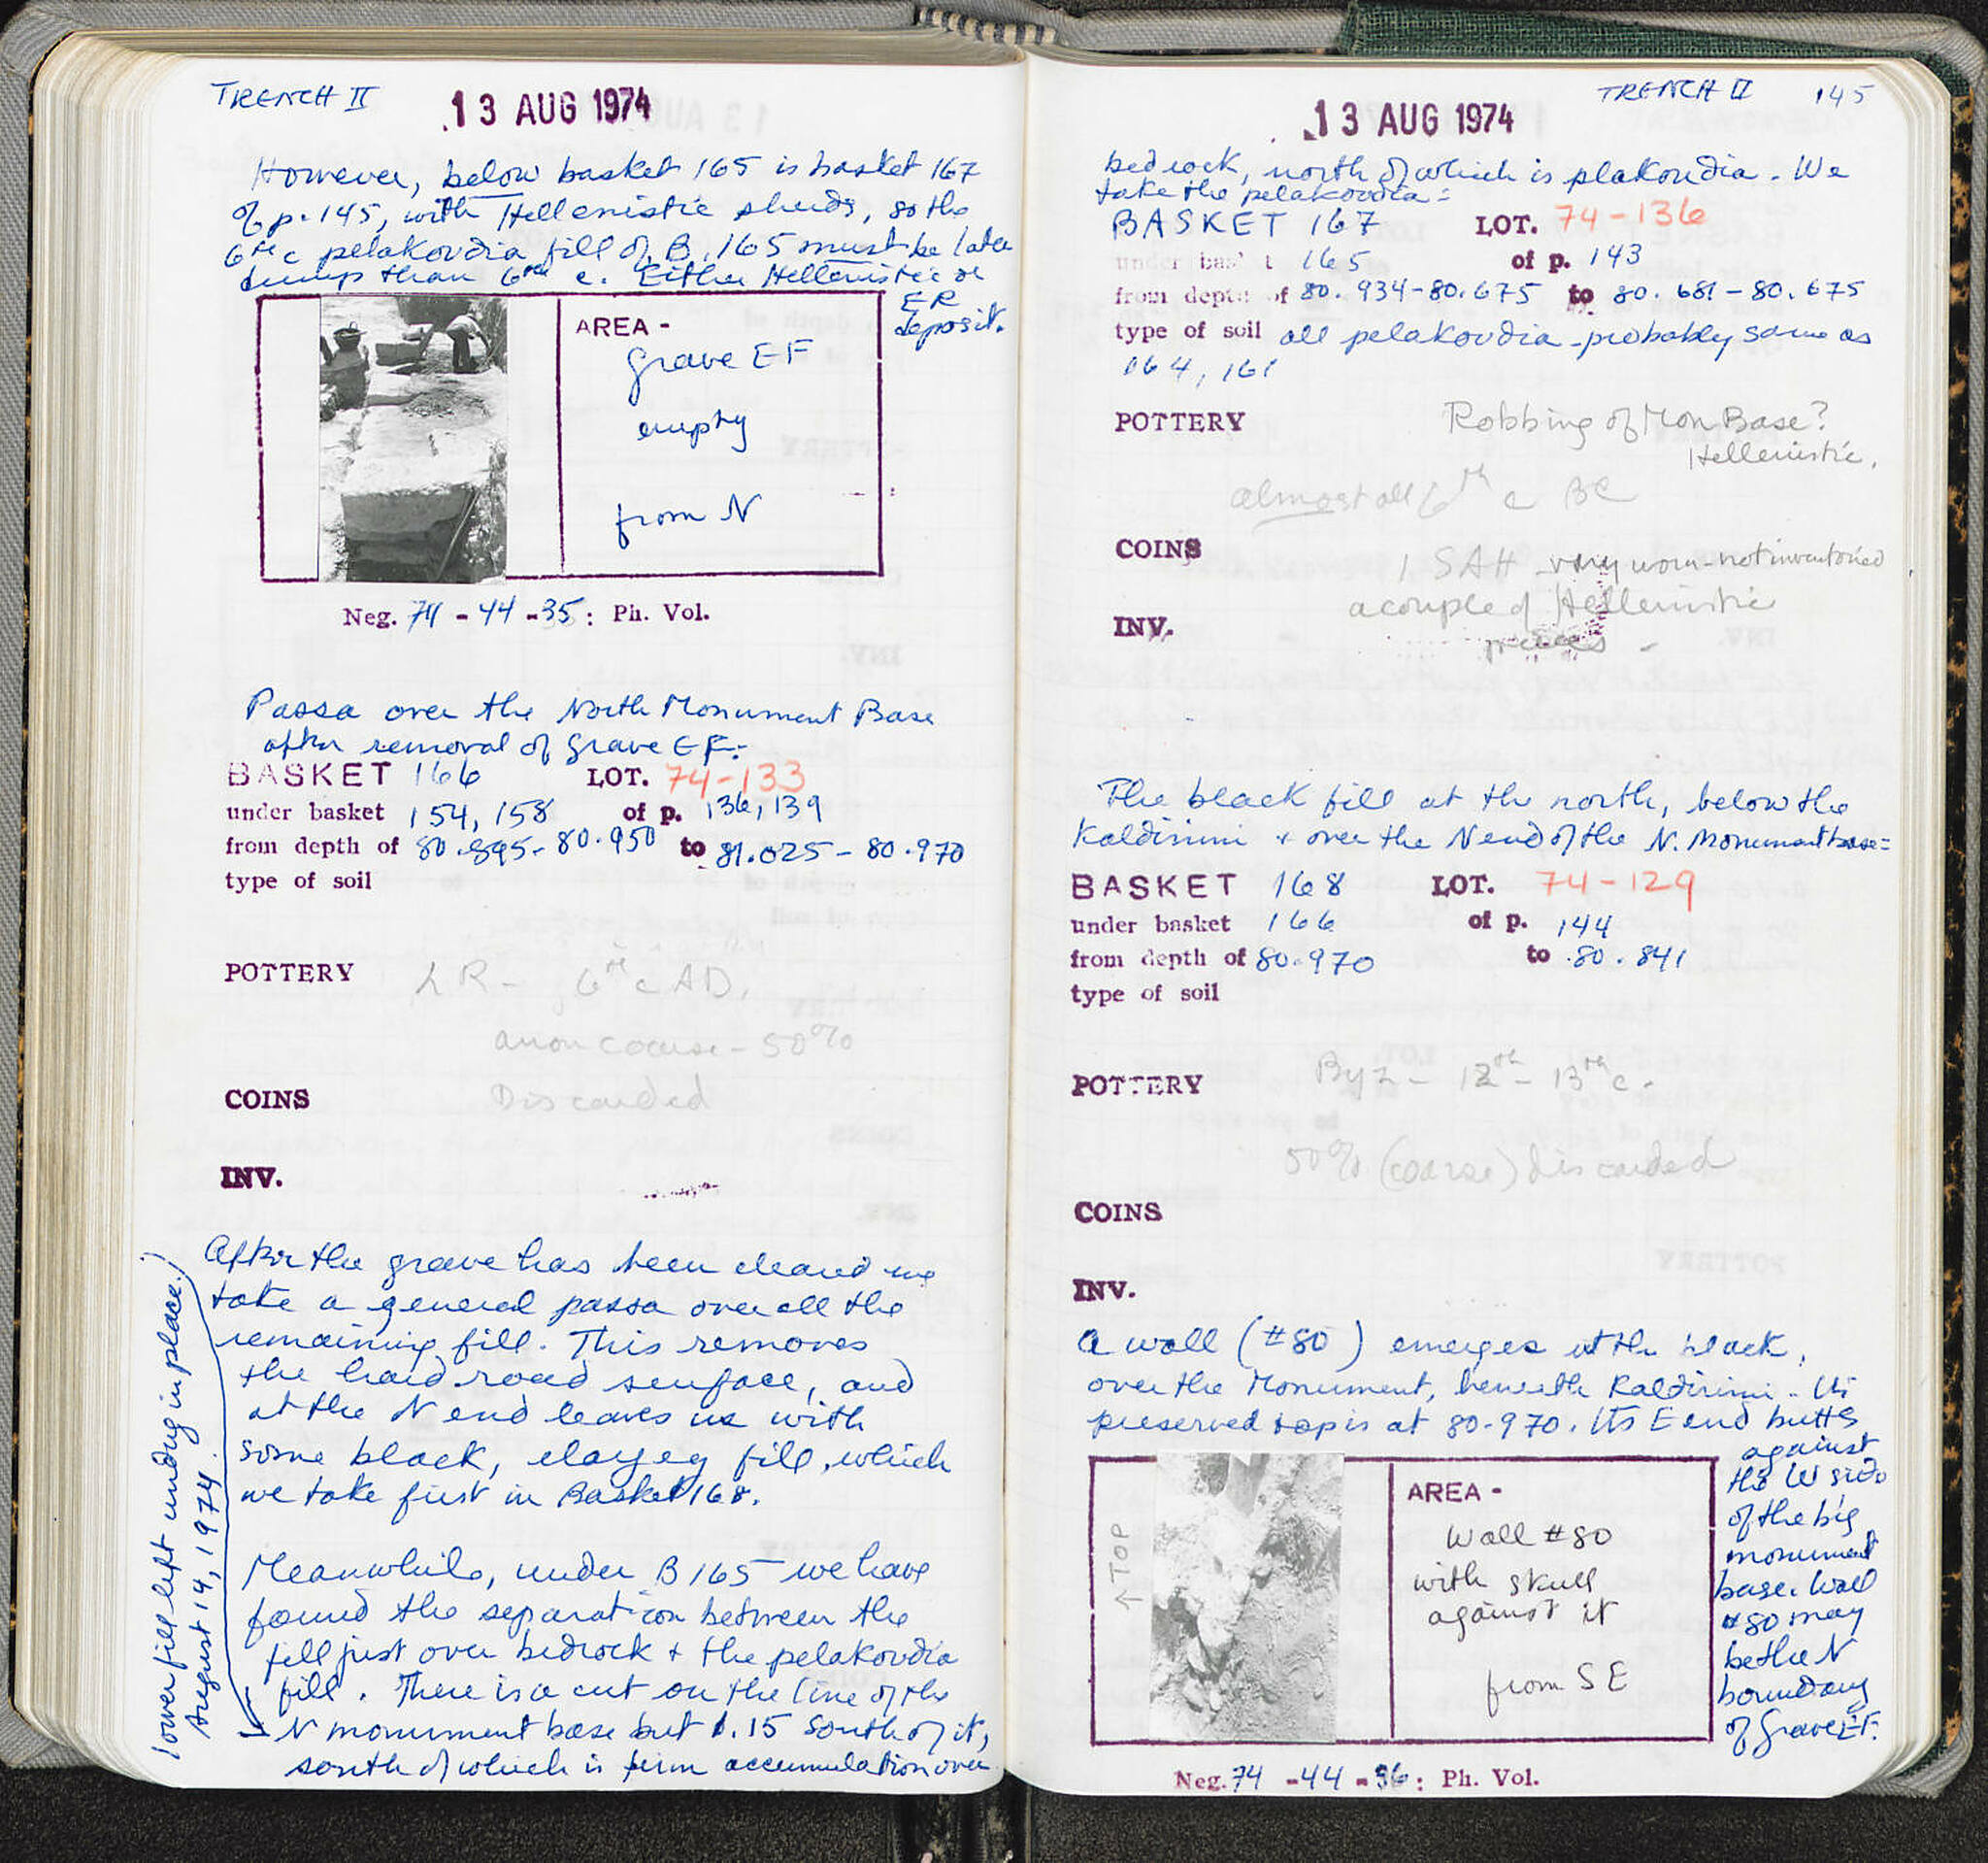 TRENCH II
13 AUG 1974
However, below basket 165 is basket 167
of p. 145, with Hellenistic sherds, so the
6th c pelakovdia fill of B. 165 must be later
dump than 6th c. Either Hellenistic or
ER
deposit.
AREA -
grave EF
empty
from N
Neg. 74 - 44 - 35 : Ph. Vol.
Passa over the North Monument Base
after removal of Grave EF:
BASKET 166 LOT. 74-133
under basket 154, 158 of p. 136, 139
from depth of 80.895 - 80.950 to 81.025 - 80.970
type of soil
POTTERY LR - 6th c AD.
anon coarse - 50%
COINS Discarded
INV.
After the grave has been cleared we
take a general passa over all the
remaining fill. This removes
the hard road surface, and
at the N end leaves us with
some black, clayey fill, which
we take first in Basket 168.
Meanwhile, under B 165 we have
found the separation between the
fill just over bedrock + the pelakovdia
fill. There is a cut on the line of the
N monument base but .15 south of it,
south of which is firm accumulation over
lower fill left undug in place.)
August 14, 1974.
TRENCH II 145
13 AUG 1974
bedrock, north of which is plakovdia. We
take the pelakovdia:
BASKET 167 LOT. 74-136
under basket 165 of p. 143
from depth of 80.934-80.675 to 80.681-80.675
type of soil all pelakovdia - probably same as
164, 161
POTTERY Robbing of Mon Base?
Hellenistic.
almost all 6th c BC
COINS 1 SAH very worn - not inventoried
a couple of Hellenistic
INV. pieces -
The black fill at the north, below the
Kaldirimi + over the N end of the N. Monument base:
BASKET 168 LOT. 74-129
under basket 166 of p. 144
from depth of 80.970 to 80.841
type of soil
POTTERY Byz - 12th - 13th c.
50% (coarse) discarded
COINS
INV.
A wall (#80) emerges at the black,
over the Monument, beneath Kaldirimi. Its
preserved top is at 80.970. Its E end butts
against
the W side
of the big
monument
base. Wall
#80 may
be the N
boundary
of Grave EF.
↑TOP
AREA -
Wall #80
with skull
against it
from SE
Neg. 74 - 44 - 36 : Ph. Vol.